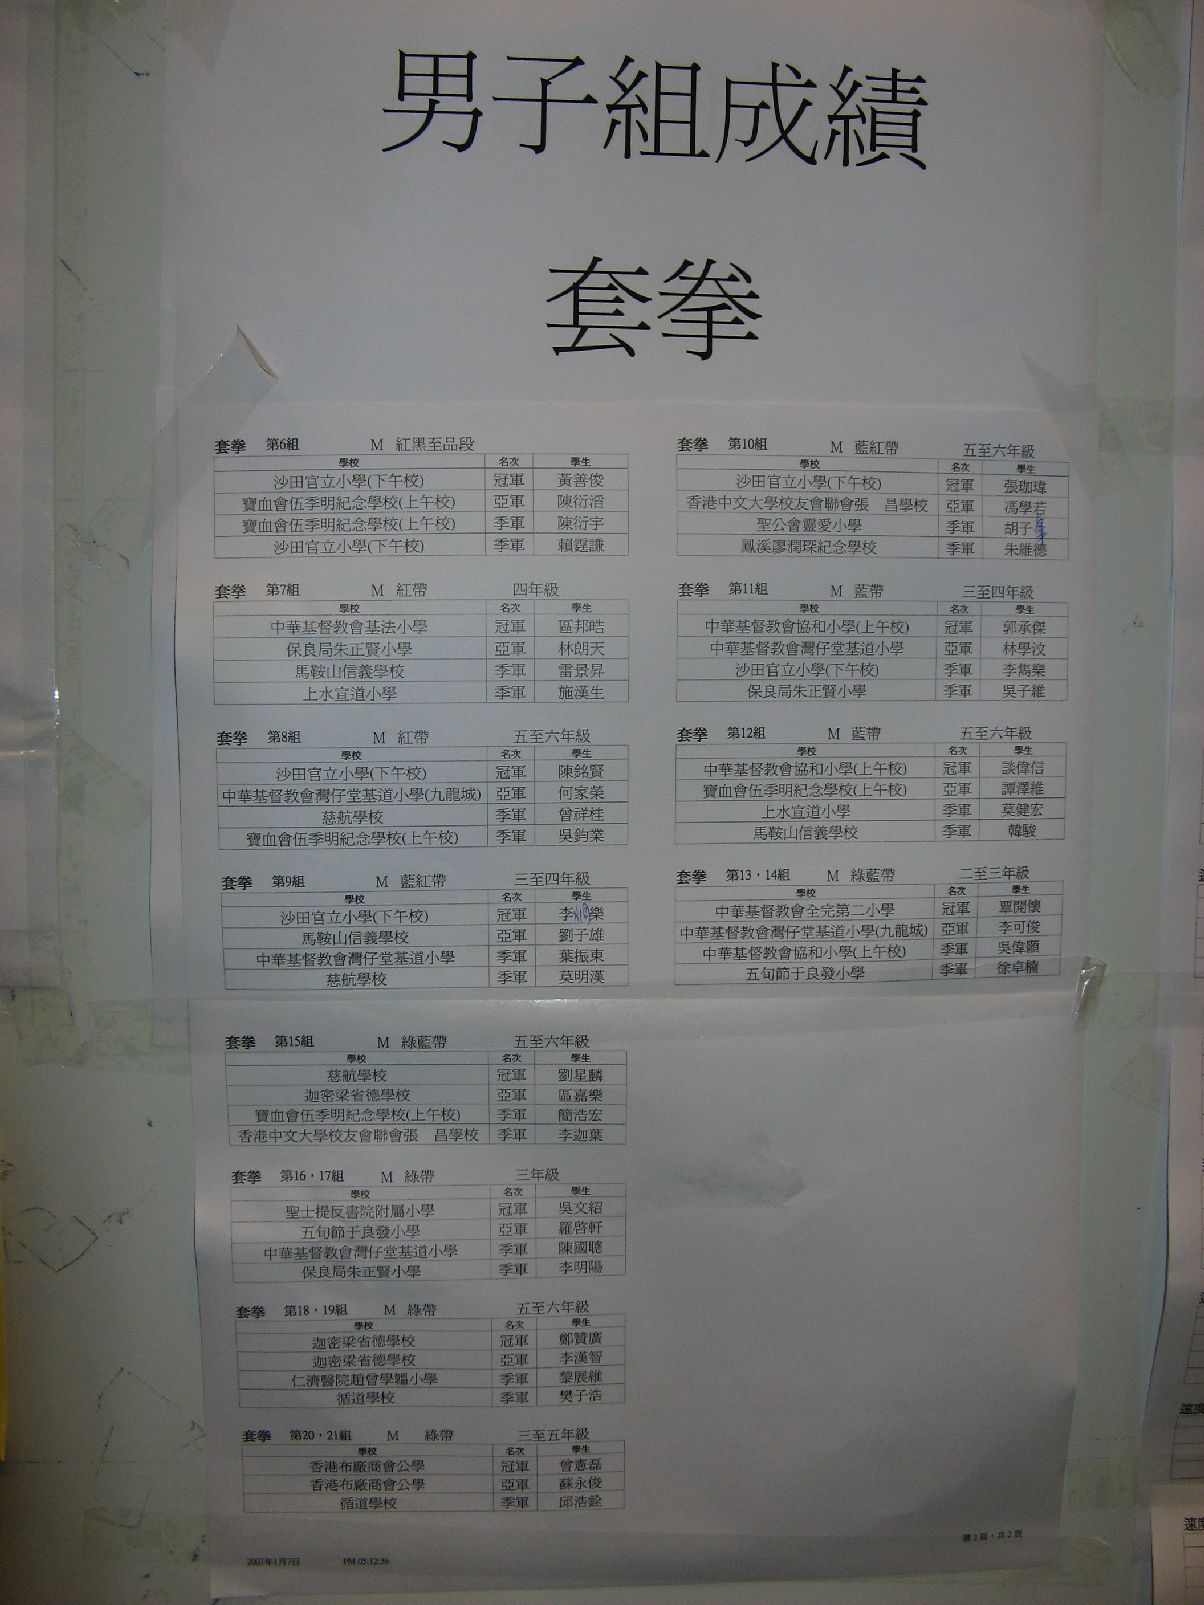 男子組成績
套拳
套拳 第6組 M 紅黑至品段
學校 名次 學生
沙田官立小學(下午校) 冠軍 黃善俊
寶血會伍季明紀念學校(上午校) 亞軍 陳衍滔
寶血會伍季明紀念學校(上午校) 季軍 陳衍宇
沙田官立小學(下午校) 季軍 賴霆謙
套拳 第7組 M 紅帶 四年級
學校 名次 學生
中華基督教會基法小學 冠軍 區邦皓
保良局朱正賢小學 亞軍 林朗天
馬鞍山信義學校 季軍 雷景昇
上水宣道小學 季軍 施漢生
套拳 第8組 M 紅帶 五至六年級
學校 名次 學生
沙田官立小學(下午校) 冠軍 陳銘賢
中華基督教會灣仔堂基道小學(九龍城) 亞軍 何家榮
慈航學校 季軍 曾祥桂
寶血會伍季明紀念學校(上午校) 季軍 吳鈞業
套拳 第9組 M 藍紅帶 三至四年級
學校 名次 學生
沙田官立小學(下午校) 冠軍 李 樂
馬鞍山信義學校 亞軍 劉子雄
中華基督教會灣仔堂基道小學 季軍 葉振東
慈航學校 季軍 莫明漢
套拳 第10組 M 藍紅帶 五至六年級
學校 名次 學生
沙田官立小學(下午校) 冠軍 張珈瑋
香港中文大學校友會聯會張 昌學校 亞軍 馮學若
聖公會靈愛小學 季軍 胡子
鳳溪廖潤琛紀念學校 季軍 朱維德
套拳 第11組 M 藍帶 三至四年級
學校 名次 學生
中華基督教會協和小學(上午校) 冠軍 郭承傑
中華基督教會灣仔堂基道小學 亞軍 林學汶
沙田官立小學(下午校) 季軍 李雋樂
保良局朱正賢小學 季軍 吳子維
套拳 第12組 M 藍帶 五至六年級
學校 名次 學生
中華基督教會協和小學(上午校) 冠軍 談偉信
寶血會伍季明紀念學校(上午校) 亞軍 譚澤維
上水宣道小學 季軍 莫健宏
馬鞍山信義學校 季軍 韓駿
套拳 第13,14組 M 綠藍帶 二至三年級
學校 名次 學生
中華基督教會全完第二小學 冠軍 覃開懷
中華基督教會灣仔堂基道小學(九龍城) 亞軍 李可俊
中華基督教會協和小學(上午校) 季軍 吳偉顥
五旬節于良發小學 季軍 徐卓楠
套拳 第15組 M 綠藍帶 五至六年級
學校 名次 學生
慈航學校 冠軍 劉星麟
迦密梁省德學校 亞軍 區嘉樂
寶血會伍季明紀念學校(上午校) 季軍 簡浩宏
香港中文大學校友會聯會張 昌學校 季軍 李迦葉
套拳 第16,17組 M 綠帶 三年級
學校 名次 學生
聖士提反書院附屬小學 冠軍 吳文紹
五旬節于良發小學 亞軍 羅啓軒
中華基督教會灣仔堂基道小學 季軍 陳國聰
保良局朱正賢小學 季軍 李明陽
套拳 第18,19組 M 綠帶 五至六年級
學校 名次 學生
迦密梁省德學校 冠軍 鄭贊廣
迦密梁省德學校 亞軍 李漢智
仁濟醫院趙曾學韞小學 季軍 黎展維
循道學校 季軍 樊子浩
套拳 第20,21組 M 綠帶 三至五年級
學校 名次 學生
香港布廠商會公學 冠軍 曾憲磊
香港布廠商會公學 亞軍 蘇永俊
循道學校 季軍 邱浩銓
第2頁,共2頁
2007年1月7日 PM 05:12:36
速度
速度